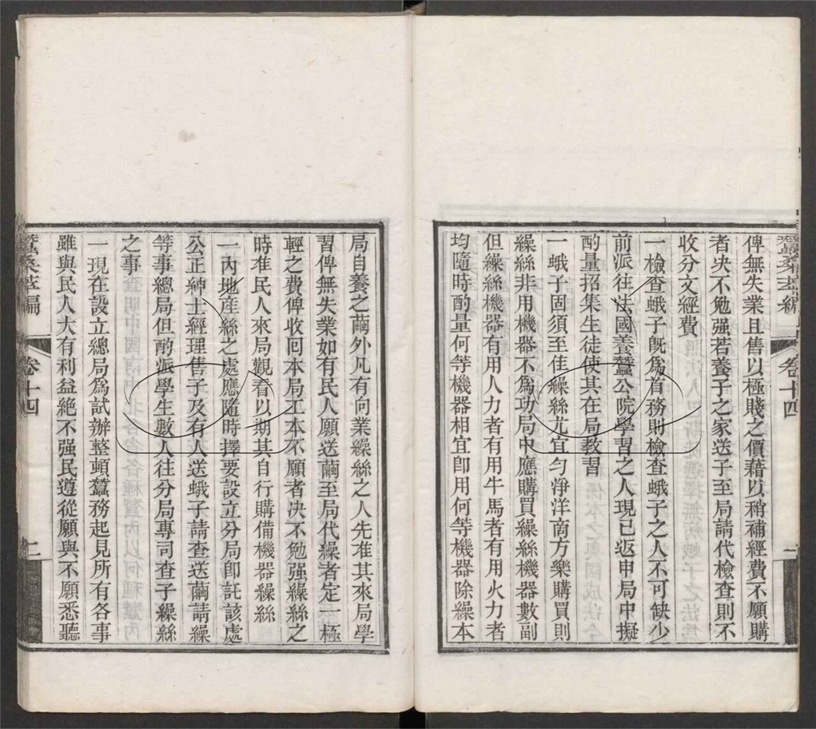 俾無失業且售以極賤之價藉以稍補經費不願購
者決不勉强若養子之家送子至局請代檢查則不
收分文經費
一檢查蛾子旣爲首務則檢查蛾子之人不可缺少
前派往法國養蠶公院學習之人現已返申局中擬
酌量招集生徒使其在局教習
一蛾子固須至佳繰絲尤宜勻淨洋商方樂購買則
繰絲非用機器不爲功局中應購買繰絲機器數副
但繰絲機器有用人力者有用牛馬者有用火力者
均隨時酌量何等機器相宜卽用何等機器除繰本
局自養之繭外凡有向業繰絲之人先准其來局學
習俾無失業如有民人願送繭至局代繰者定一極
輕之費俾收回本局工本不願者决不勉强繰絲之
時准民人來局觀看以期其自行購備機器繰絲
一內地產絲之處應隨時擇要設立分局卽託該處
公正紳士經理售子及有人送蛾子請查送繭請繰
等事總局但酌派學生數人往分局專司查子繰絲
之事
一現在設立總局爲試辦整頓蠶務起見所有各事
雖與民人大有利益絕不强民遵從願與不願悉聽
蠶桑萃編
卷十四
二